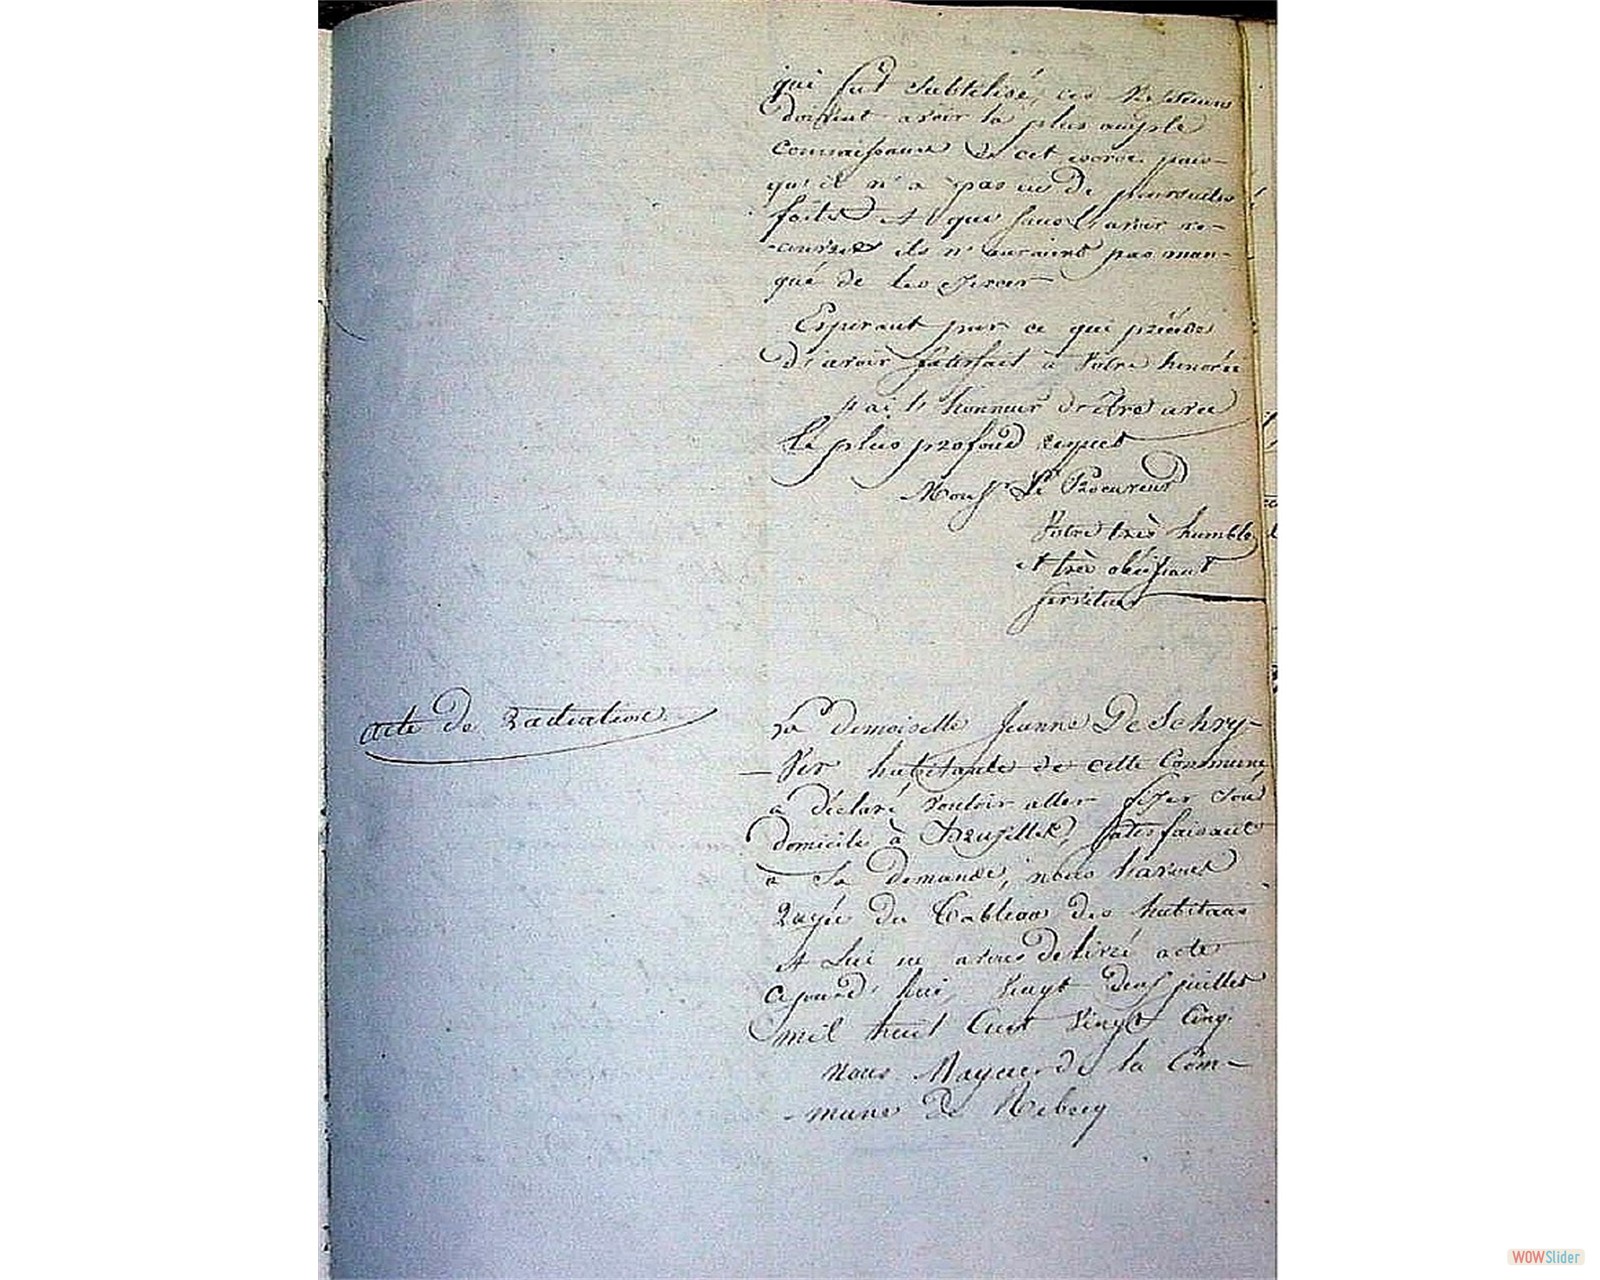 qui fut subtilisé, ces Messieurs
doivent avoir la plus ample
connaissance de cet
qu'il n'a pas eu de poursuites
faites et que sans avoir re-
-cours ils n'auraient pas man-
qué de les
Espérant par ce qui précède
d'avoir satisfait à Votre honorée
j'ai l'honneur d'être avec
le plus profond respect
Monsr Le Procureur
Votre très humble
et très obéissant
serviteur
acte de Radiation
La demoiselle Jeanne De Schry-
-Ver habitante de cette Commune,
a déclaré vouloir aller fixer son
domicile à Bruxelles, satisfaisant
à sa demande, nous l'avons
Rayée du Tableau des habitans
et Lui en avons delivré acte
cejourd'hui, vingt deux juillet
mil huit Cent Vingt Cinq.
Nous Mayeur de la Com-
-mune de Rebecq
WOWSlider